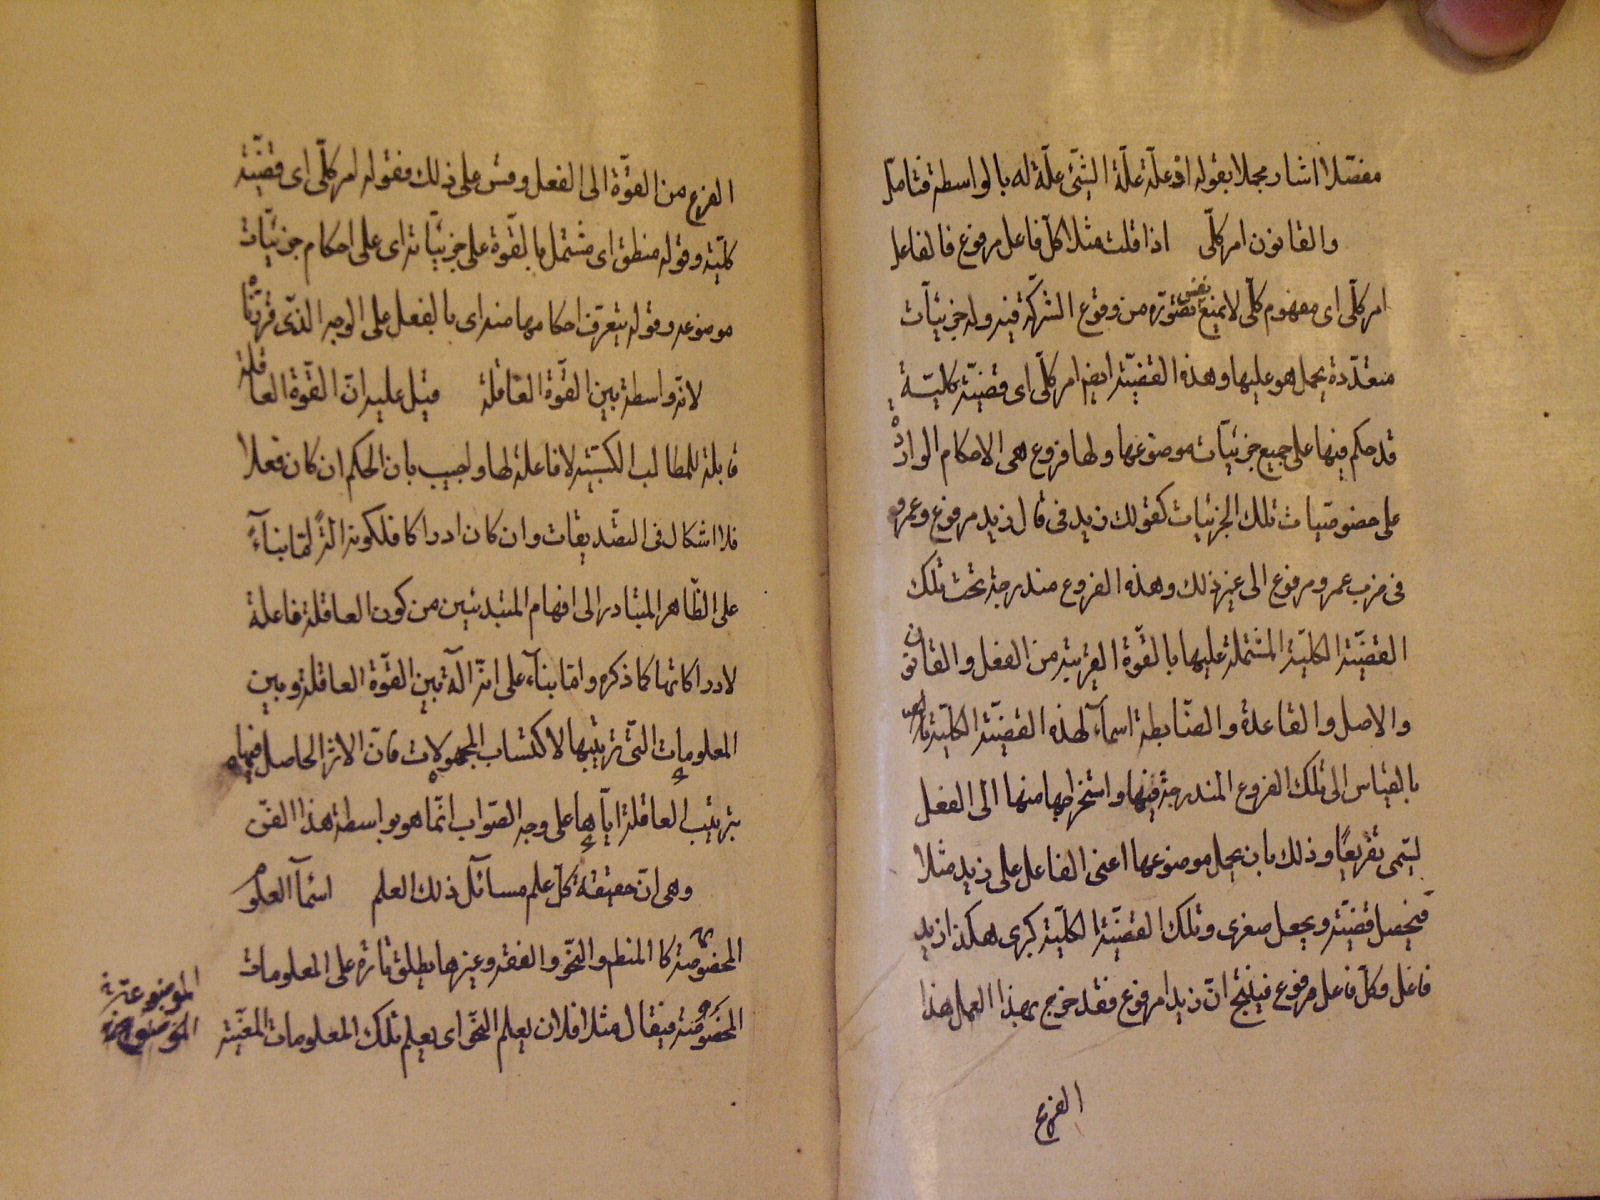 مفصّلا اشار مجملا بقوله اذ علّة علّة الشّئ علّة له بالواسطة فتامل
والقانون امر كلّى اذا قلت مثلا كلّ فاعل مرفوع فالفاعل
امر كلّى اى مفهوم كلّى لا يمنع نفس تصوّره من وقوع الشركة فيه وله جزئيّات
متعدّدة يحمل هو عليها وهذه القضيّة ايضا امر كلّى اى قضيّة كليّة
قد حكم فيها على جميع جزئيّات موضوعها ولها فروع هى الاحكام الواردة
على خصوصيّات تلك الجزئيات كقولك زيد فى قال زيد مرفوع وعمرو
فى ضرب عمرو مرفوع الى غير ذلك وهذه الفروع مندرجة تحت تلك
القضيّة الكليّة المشتملة عليها بالقوّة القريبة من الفعل والقانون
والاصل والقاعدة والضّابطة اسماء لهذه القضيّة الكليّة
بالقياس الى تلك الفروع المندرجة فيها واستخراجها منها الى الفعل
يسمّى تفريعًا وذلك بان يحمل موضوعها اعنى الفاعل على زيد مثلا
فيحصل قضيّة ويجعل صغرى وتلك القضيّة الكليّة كبرى هكذا زيد
فاعل وكلّ فاعل مرفوع فينتج انّ زيدا مرفوع فقد خرج بهذا العمل هذا
الفرع
الفرع من القوّة الى الفعل وقس على ذلك فقوله امر كلّى اى قضيّة
كليّة وقوله منطبق اى مشتمل بالقوّة على جزئيّاته اى على احكام جزئيّات
موضوعه وقوله يتعرّف احكامها منه اى بالفعل على الوجه الذّى قرّرناه
لانّه واسطة بين القوّة العاقلة قيل عليه انّ القوّة العاقلة
قابلة للمطالب الكسبيّة لا فاعلة لها واجيب بان الحكم ان كان فعلا
فلا اشكال فى التصّديقات وان كان ادراكا فلكونه الة لها بناءً
على الظّاهر المتبادر الى افهام المبتدئين من كون العاقلة فاعلة
لادراكاتها كما ذكره وامّا بناء على انّه آلة بين القوّة العاقلة وبين
المعلومات التّى ترتبها لاكتساب المجهولات فانّ الاثر الحاصل فيها
بترتيب العاقلة ايّاها على وجه الصّواب انّما هو بواسطة هذا الفنّ
وهى انّ حقيقة كلّ علم مسائل ذلك العلم اسماء العلوم
المخصوصة كالمنطق والنّحو والفقه وغيرها يطلق تارة على المعلومات
المخصوصة فيقال مثلا فلان يعلم النّحو اى يعلم تلك المعلومات المعيّنة